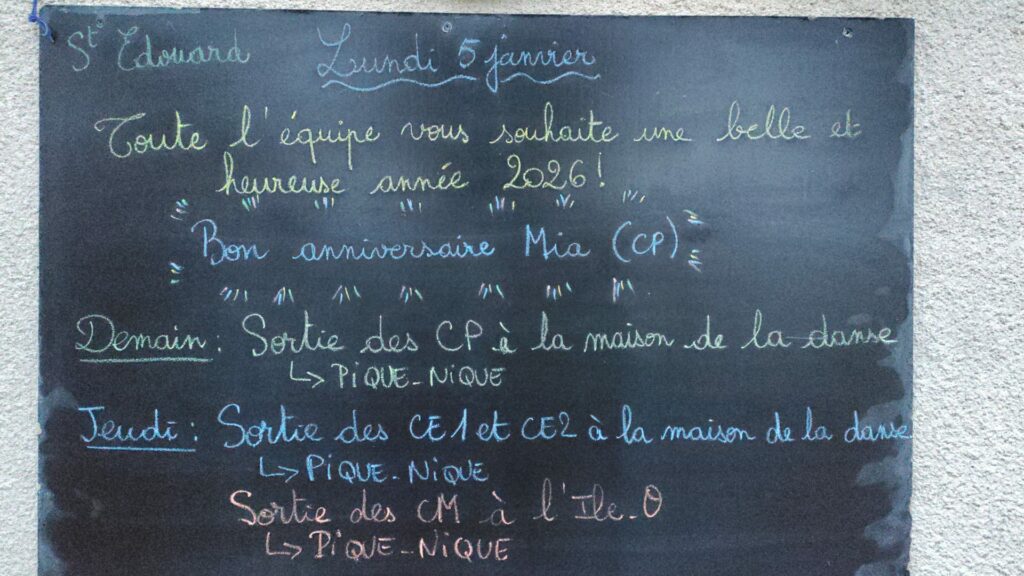 St Edouard Lundi 5 janvier
Toute l'équipe vous souhaite une belle et
heureuse année 2026!
Bon anniversaire Mia (CP)
Demain : Sortie des CP à la maison de la danse
↳ PIQUE-NIQUE
Jeudi : Sortie des CE1 et CE2 à la maison de la danse
↳ PIQUE-NIQUE
Sortie des CM à l'Ile-O
↳ PIQUE-NIQUE